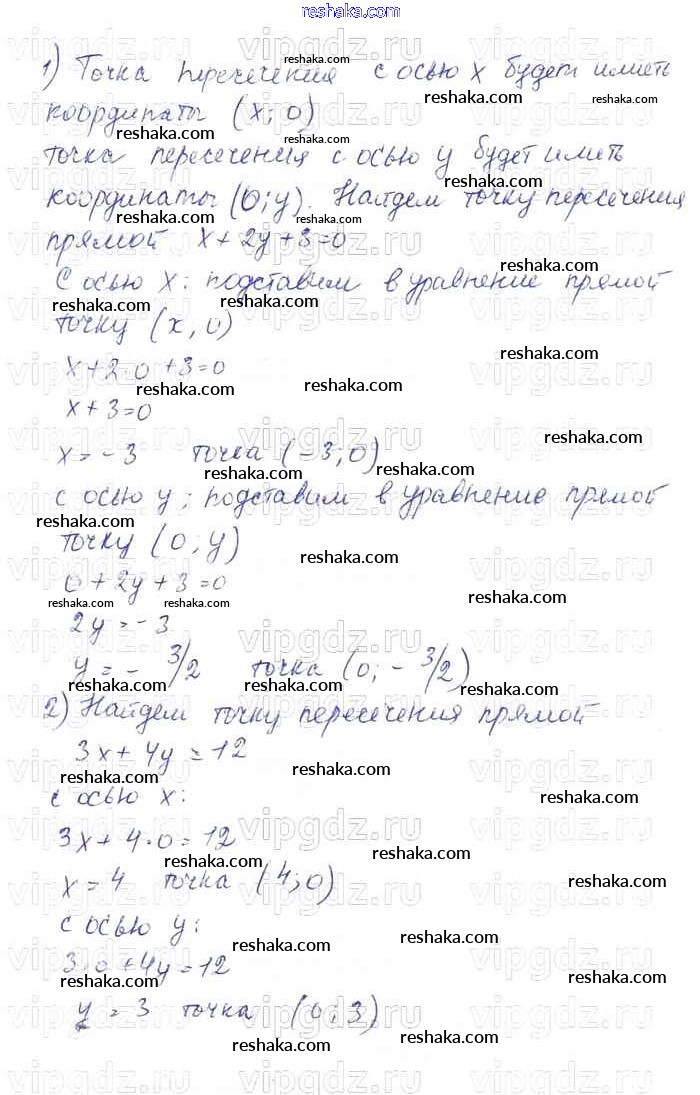 1) Точка пересечения с осью x будет иметь
координаты (x; 0)
точка пересечения с осью y будет иметь
координаты (0; y). Найдем точку пересечения
прямой x + 2y + 3 = 0
С осью x: подставим в уравнение прямой
точку (x, 0)
x + 2·0 + 3 = 0
x + 3 = 0
x = -3 точка (-3; 0)
с осью y; подставим в уравнение прямой
точку (0; y)
0 + 2y + 3 = 0
2y = -3
y = - 3/2 точка (0; - 3/2)
2) Найдем точку пересечения прямой
3x + 4y = 12
с осью x:
3x + 4·0 = 12
x = 4 точка (4; 0)
с осью y:
3·0 + 4y = 12
y = 3 точка (0; 3)
reshaka.com
vipgdz.ru